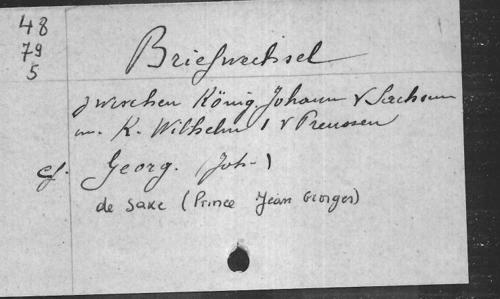 48
79
5
Briefwechsel
zwischen König Johann v Sachsen
u. K. Wilhelm I v Preussen
cf. Georg. (Joh-)
de Saxe (Prince Jean Georges)